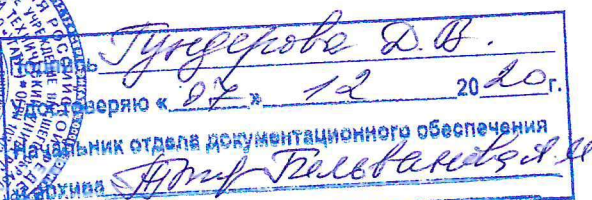 Подпись Гундерова Д.В.
Удостоверяю « 07 » 12 2020г.
Начальник отдела документационного обеспечения
и архива